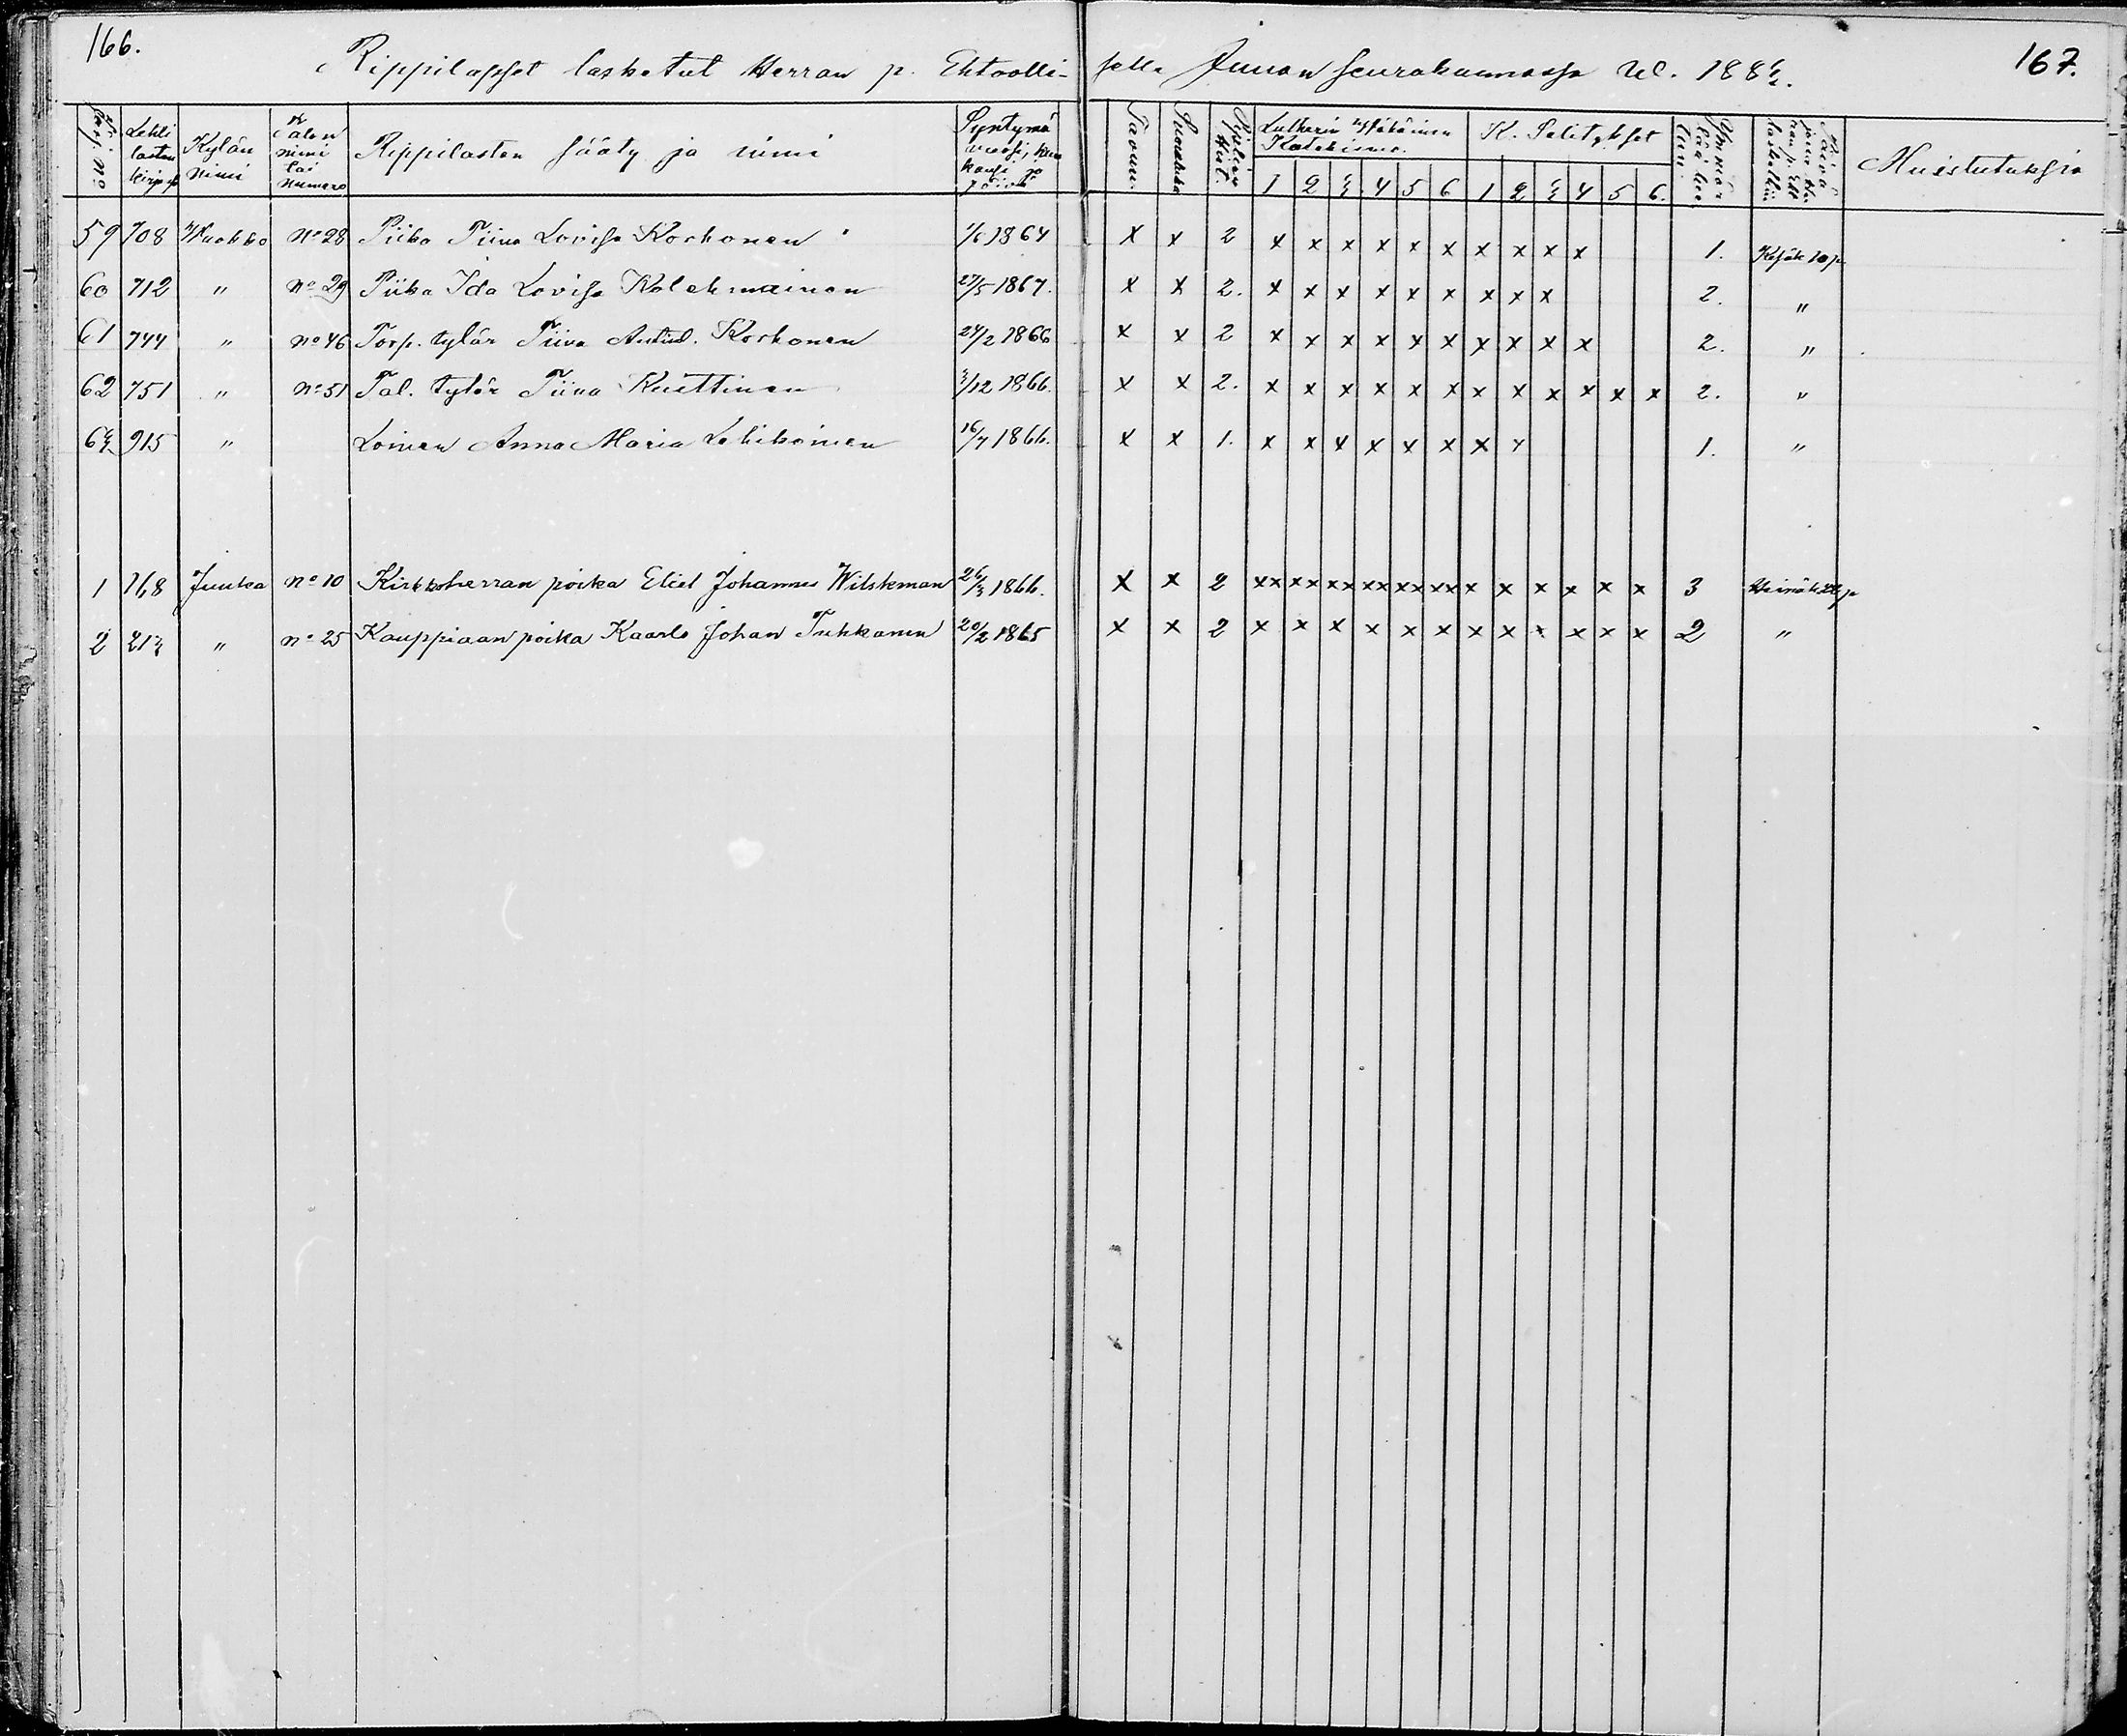 166.
Rippilapset lasketut Herran p. Ehtoolli- selle Juuan seurakunnassa v. 1883.
167.
Lehti lasten kirjassa
Kylän nimi
Talon nimi tai numero
Rippilasten sääty ja nimi
Syntymä vuosi, kuu kausi ja päivä
Lutherin Vähäinen Katekismo.
K. Selitykset
Muistutuksia
1 2 3 4 5 6 1 2 3 4 5 6.
59 708 Nº 28 Piika Tiina Lovisa Korhonen 1/6 1864 x x 2 x x x x x x x x x x 1. Kesäk 10 p
60 712 " Nº 29 Piika Ida Lovisa Kolehmainen 27/5 1867. x x 2. x x x x x x x x x 2. "
61 744 " Nº 46 Torp. tytär Tiina Korhonen 24/2 1866 x x 2 x x x x x x x x x x 2. "
62 751 " Nº 51 Tal. tytär Tiina Kuittinen 3/12 1866. x x 2. x x x x x x x x x x x x 2. "
63 915 " Loinen Anna Maria Lehikoinen 16/7 1866. x x 1. x x x x x x x x 1. "
1 168 Juuka Nº 10 Kirkkoherran poika Eliel Johannes Wilskman 26/3 1866. x x 2 xx xx xx xx xx xx x x x x x x 3
2 213 " Nº 25 Kauppiaan poika Kaarlo Johan Tuhkanen 20/2 1865 x x 2 x x x x x x x x x x x x 2 "